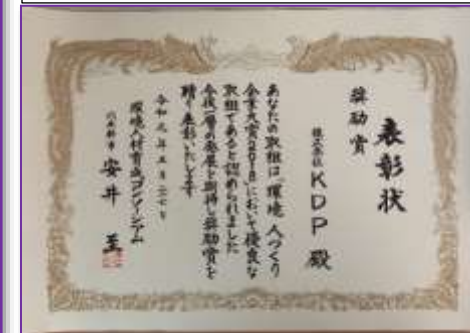 表彰状
奨励賞
株式会社 KDP 殿
あなたの取組は「環境 人づくり
企業大賞2018」において優良な
取組であると認められました
今後一層の発展を期待し奨励賞を
贈り表彰いたします
令和元年五月二十七日
環境人材育成コンソーシアム
代表幹事 安井 至